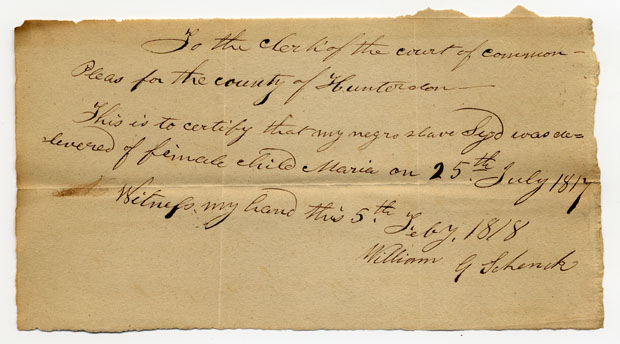 To the clerk of the court of common
Pleas for the county of Hunterdon
This is to certify that my negro slave Syd was de=
levered of female child Maria on 25th July 1817
Witness my hand this 5th Feby. 1818
William G Schenck